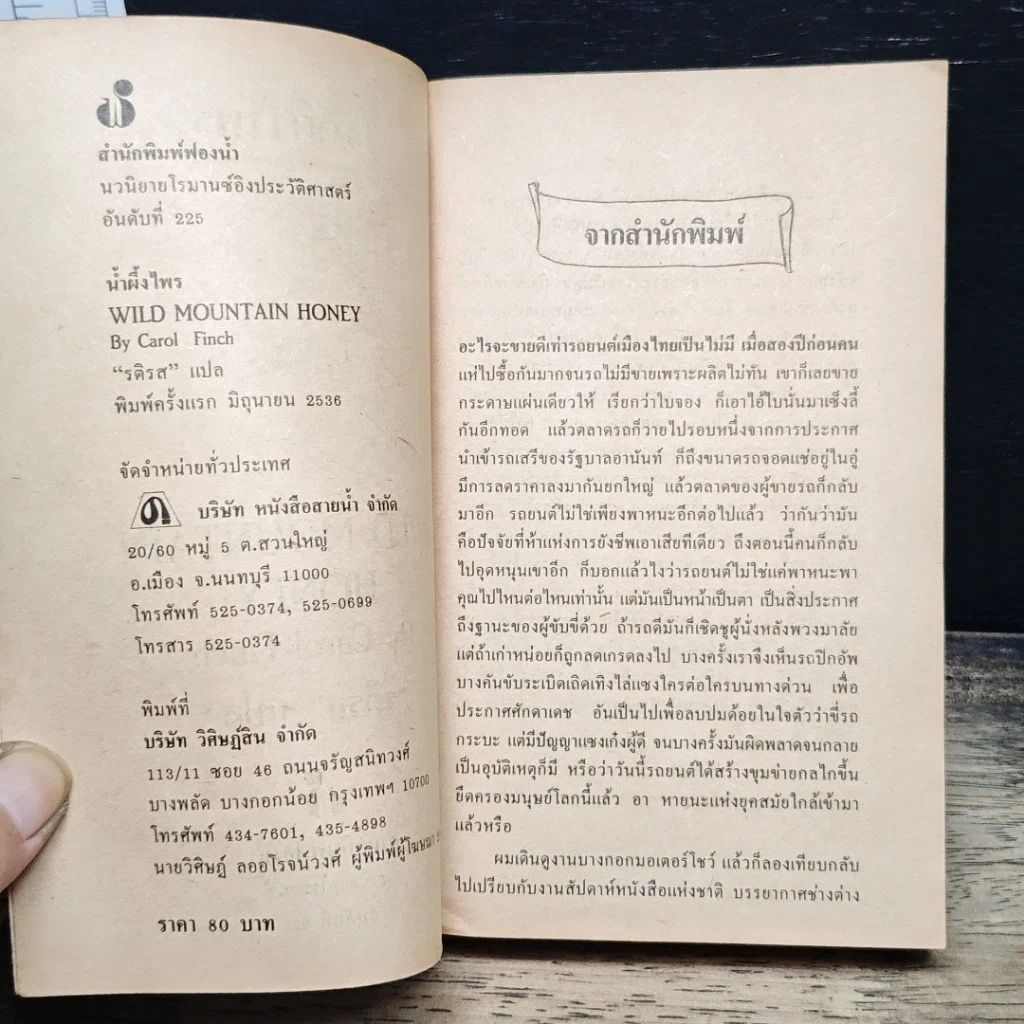 สำนักพิมพ์ฟองน้ำ
นวนิยายโรมานซ์อิงประวัติศาสตร์
อันดับที่ 225
น้ำผึ้งไพร
WILD MOUNTAIN HONEY
By Carol Finch
“รติรส” แปล
พิมพ์ครั้งแรก มิถุนายน 2536
จัดจำหน่ายทั่วประเทศ
บริษัท หนังสือสายน้ำ จำกัด
20/60 หมู่ 5 ต.สวนใหญ่
อ.เมือง จ.นนทบุรี 11000
โทรศัพท์ 525-0374, 525-0699
โทรสาร 525-0374
พิมพ์ที่
บริษัท วิศิษฎ์สิน จำกัด
113/11 ซอย 46 ถนนจรัญสนิทวงศ์
บางพลัด บางกอกน้อย กรุงเทพฯ 10700
โทรศัพท์ 434-7601, 435-4898
นายวิศิษฎ์ ลออโรจน์วงศ์ ผู้พิมพ์ผู้โฆษณา
ราคา 80 บาท
จากสำนักพิมพ์
อะไรจะขายดีเท่ารถยนต์เมืองไทยเป็นไม่มี เมื่อสองปีก่อนคน
แห่ไปซื้อกันมากจนรถไม่มีขายเพราะผลิตไม่ทัน เขาก็เลยขาย
กระดาษแผ่นเดียวให้ เรียกว่าใบจอง ก็เอาไอ้ใบนั่นมาเซ็งลี้
กันอีกทอด แล้วตลาดรถก็วายไปรอบหนึ่งจากการประกาศ
นำเข้ารถเสรีของรัฐบาลอานันท์ ก็ถึงขนาดรถจอดแช่อยู่ในอู่
มีการลดราคาลงมากันยกใหญ่ แล้วตลาดของผู้ขายรถก็กลับ
มาอีก รถยนต์ไม่ใช่เพียงพาหนะอีกต่อไปแล้ว ว่ากันว่ามัน
คือปัจจัยที่ห้าแห่งการยังชีพเอาเสียทีเดียว ถึงตอนนี้คนก็กลับ
ไปอุดหนุนเขาอีก ก็บอกแล้วไงว่ารถยนต์ไม่ใช่แค่พาหนะพา
คุณไปไหนต่อไหนเท่านั้น แต่มันเป็นหน้าเป็นตา เป็นสิ่งประกาศ
ถึงฐานะของผู้ขับขี่ด้วย ถ้ารถดีมันก็เชิดชูผู้นั่งหลังพวงมาลัย
แต่ถ้าเก่าหน่อยก็ถูกลดเกรดลงไป บางครั้งเราจึงเห็นรถปิกอัพ
บางคันขับระเบิดเถิดเทิงไล่แซงใครต่อใครบนทางด่วน เพื่อ
ประกาศศักดาเดช อันเป็นไปเพื่อลบปมด้อยในใจตัวว่าขี่รถ
กระบะ แต่มีปัญญาแซงเก๋งผู้ดี จนบางครั้งมันผิดพลาดจนกลาย
เป็นอุบัติเหตุก็มี หรือว่าวันนี้รถยนต์ได้สร้างขุมข่ายกลไกขึ้น
ยึดครองมนุษย์โลกนี้แล้ว อา หายนะแห่งยุคสมัยใกล้เข้ามา
แล้วหรือ
ผมเดินดูงานบางกอกมอเตอร์โชว์ แล้วก็ลองเทียบกลับ
ไปเปรียบกับงานสัปดาห์หนังสือแห่งชาติ บรรยากาศช่างต่าง